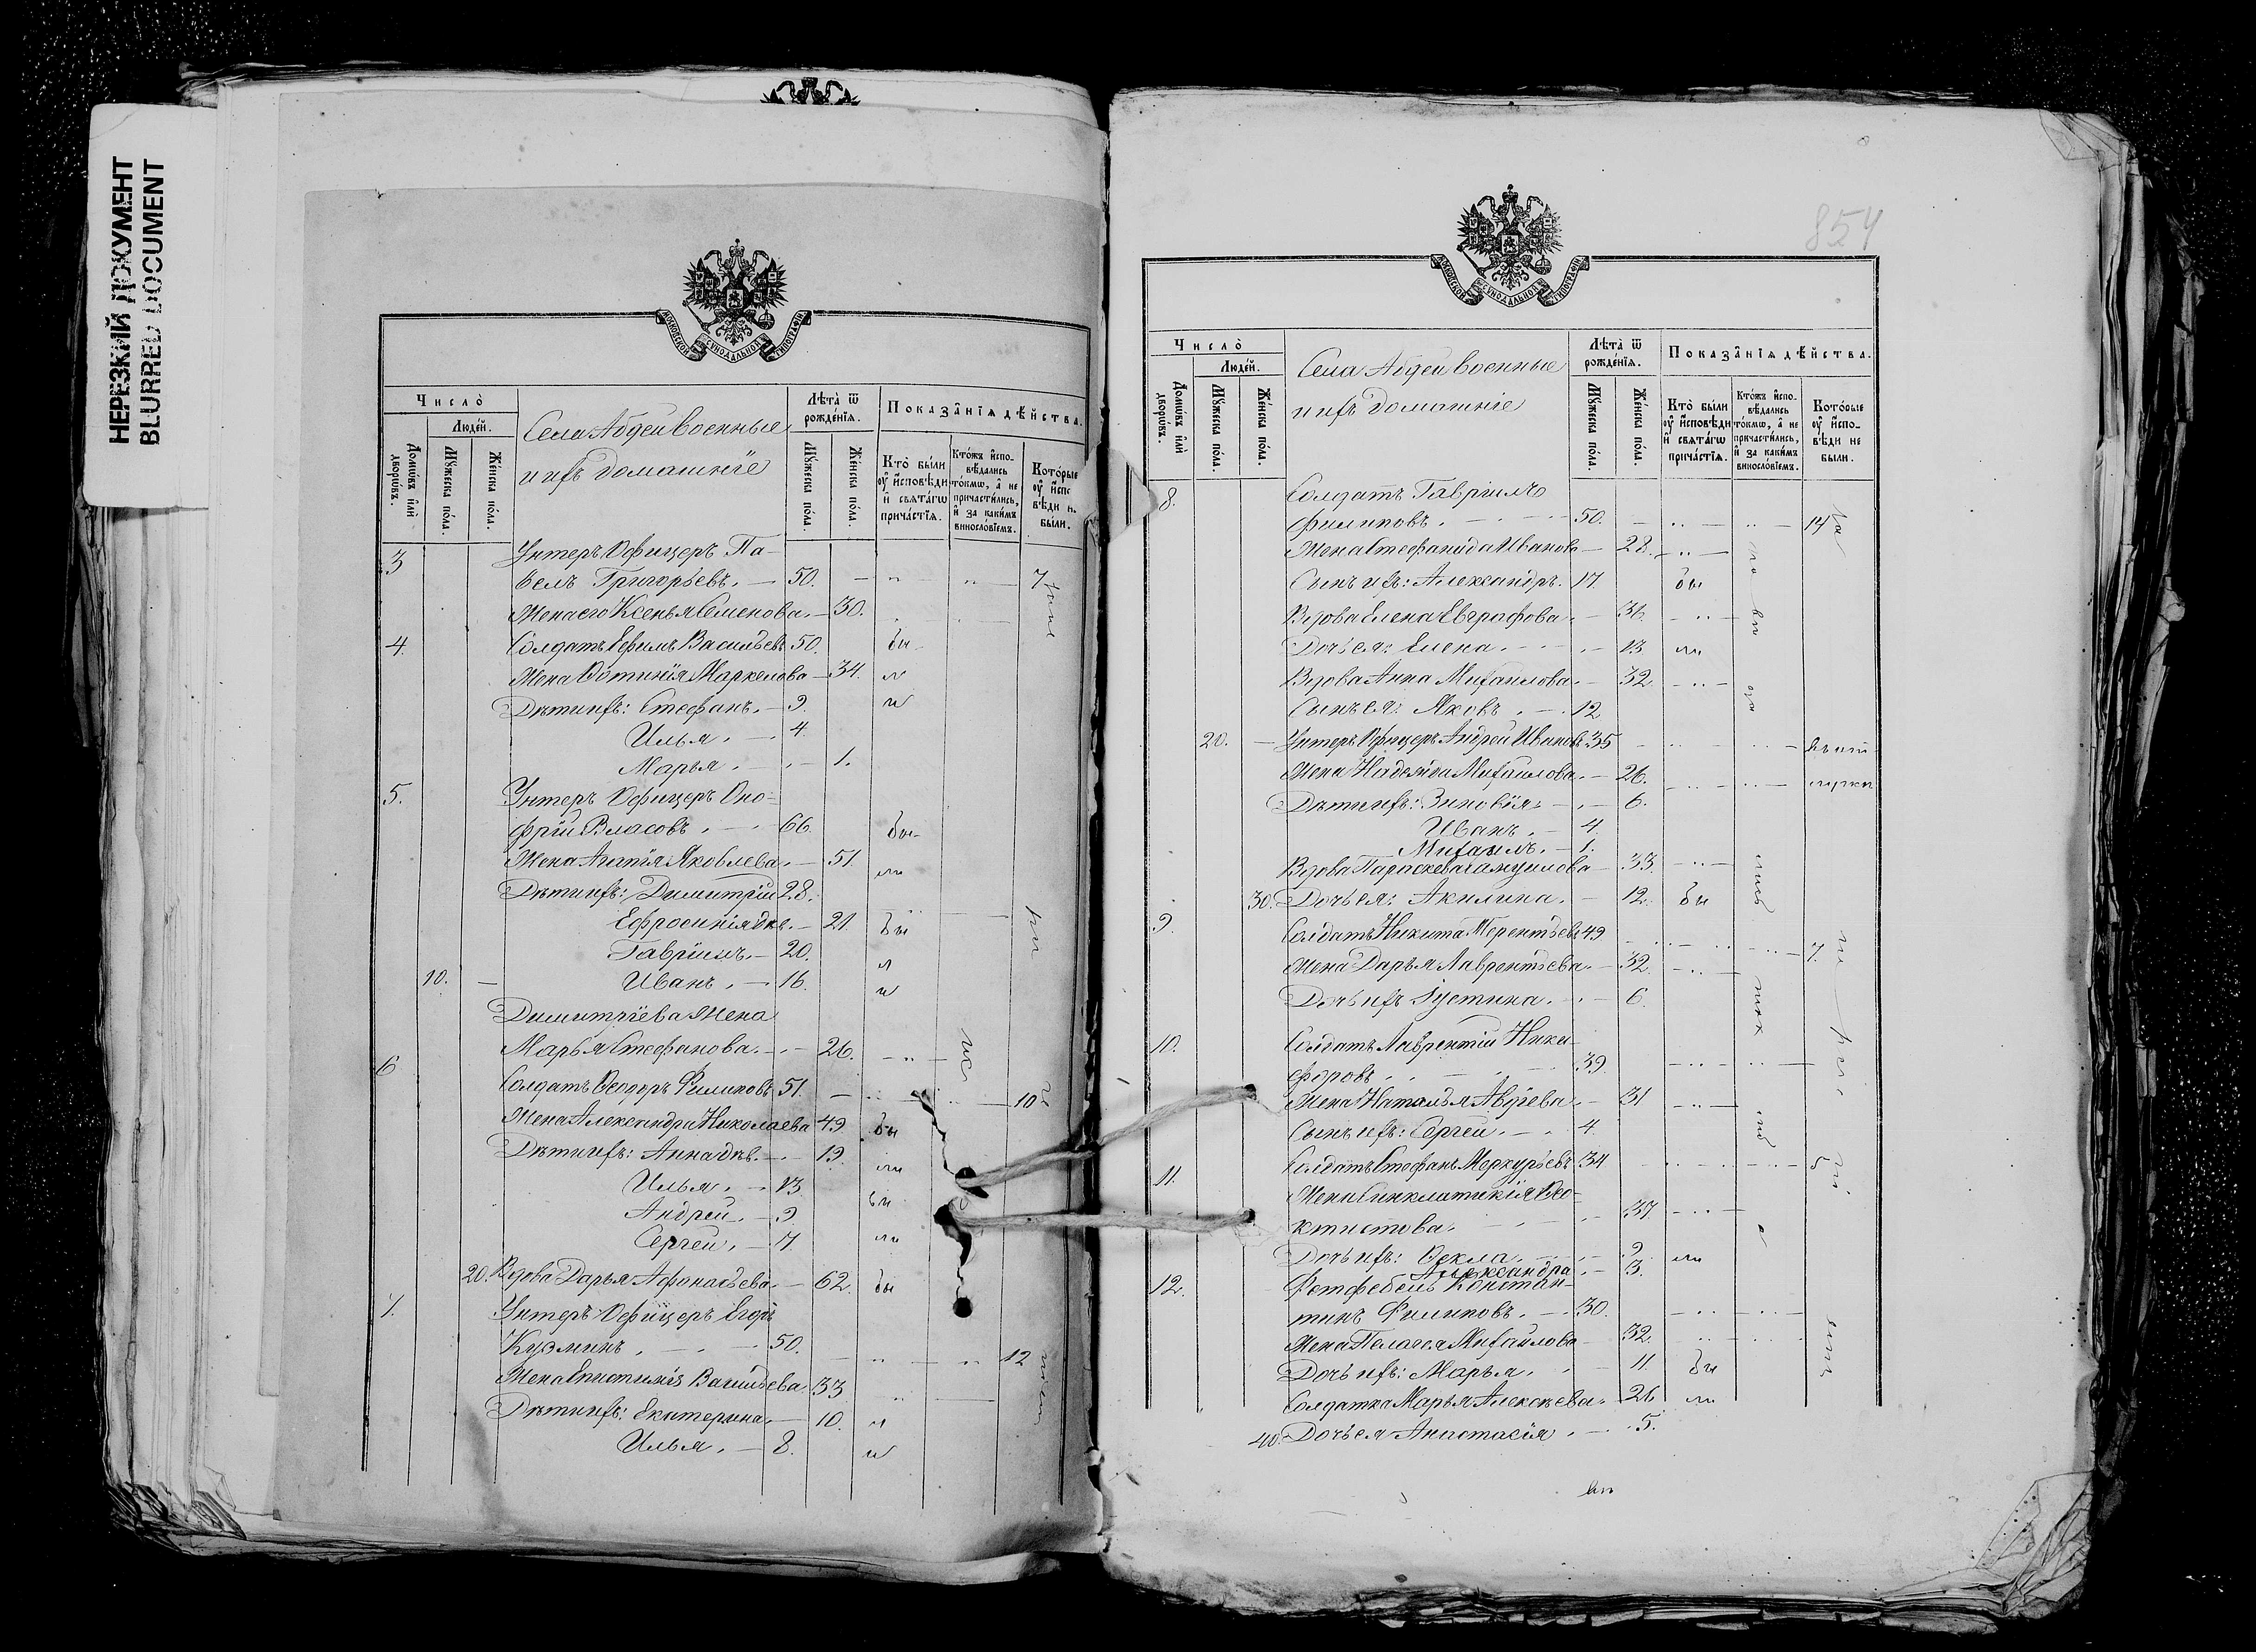 НЕРЕЗКИЙ ДОКУМЕНТ
BLURRED DOCUMENT
МОСКОВСКОЙ СУНОДАЛЬНОЙ ТИПОГРАФІИ
Число̀
Людє́й.
Домѡ́въ и҆лѝ дворѡ́въ.
Мꙋ́жеска по́ла.
Же́нска по́ла.
Села Абдеи военные
и ихъ домашніе
Лѣта̀ ѿ рождє́нїѧ.
Мꙋ́жеска по́ла.
Же́нска по́ла.
Показа̑нїѧ дѣ́йства.
Кто̀ бы́ли ᲂу҆ и҆́сповѣди и҆ свѧта́гѡ прича́стїѧ.
Кто́жъ и҆спо-вѣ́дались то́кмѡ, а҆ не причасти́лись, и҆ за каки́мъ винослѡ́вїемъ.
Кото́рые ᲂу҆ и҆́спо вѣди н бы́ли.
3 Унтеръ Офицеръ Па-
велъ Григорьевъ. — 50. — „ „ — 7
Жена его Ксенья Семенова. — 30.
4. Солдатъ Ефимъ Васильевъ 50. бы-
Жена Фотинія Маркелова — 34. л
Дѣти ихъ: Стефанъ. — 9. и
Илья. — 4.
Марья. — . — 1.
5. Унтеръ Офицеръ Оно-
фрій Власовъ. — . — 66. бы-
Жена Агапія Яковлева. — 51. ли
Дѣти ихъ: Димитрій 28.
Ефросинія двц. — 21. бы
Гавріилъ. — 20. л
10. — Иванъ. — 16. и
Димитріева Жена
Марья Стефанова. — . — 26. — „ —
6 Солдатъ Ѳеодоръ Филиповъ 51. — 10
Жена Александра Николаева 49 бы
Дѣти ихъ: Анна двц. — . — 19. ли
Илья. — 13 бы
Андрей. — 9.
Сергей. — 7. ли
20. Вдова Дарья Афонасьева. — 62. бы
7. Унтеръ Офицеръ Егоръ
Кузминъ. — . — 50. — „ — „ 12
Жена Епистимія Васильева 33
Дѣти ихъ: Екатерина. — 10. л
Илья. — 8. и
854
МОСКОВСКОЙ СУНОДАЛЬНОЙ ТИПОГРАФІИ
Число̀
Людє́й.
Домѡ́въ и҆лѝ дворѡ́въ.
Мꙋ́жеска по́ла.
Же́нска по́ла.
Села Абдеи военные
и ихъ домашніе
Лѣта̀ ѿ рождє́нїѧ.
Мꙋ́жеска по́ла.
Же́нска по́ла.
Показа̑нїѧ дѣ́йства.
Кто̀ бы́ли ᲂу҆ и҆́сповѣди и҆ свѧта́гѡ прича́стїѧ.
Кто́жъ и҆спо-вѣ́дались то́кмѡ, а҆ не причасти́лись, и҆ за каки́мъ винослѡ́вїемъ.
Кото́рые ᲂу҆ и҆́спо-вѣди не бы́ли.
8. Солдатъ Гавріилъ
Филиповъ. — . — 50. — „ — „ — 14
Жена Стефанида Иванова — 28. „ —
Сынъ ихъ: Александръ. 17. бы
Вдова Елена Евграфова. — 36. — „ —
Дочь ея: Елена. — . — 13 ли
Вдова Анна Михаилова. — 32. — „ —
Сынъ ея: Яковъ. — . 12
20. — Унтеръ Офицеръ Андрей Ивановъ 35
Жена Надежда Михаилова. — 26.
Дѣти ихъ: Зиновія. — . — 6.
Иванъ. — 4.
Михаилъ. — 1.
Вдова Параскева Самуилова — 33. — „ —
30. Дочь ея: Акилина. — 12. бы
9. Солдатъ Никита Терентьевъ 49 7.
Жена Дарья Лаврентьева. — 32. — „ —
Дочь ихъ Іустина. — . — 6.
10. Солдатъ Лаврентій Ники-
форовъ. 39
Жена Наталья Авдеева. — 31 — „ —
Сынъ ихъ: Сергей. — . 4.
11. Солдатъ Стефанъ Меркурьевъ 34 5
Жена Синклитикія Ѳео-
ктистова. 37 — „ —
Дочь ихъ: Ѳекла. — . — 9. ли
Александра. — 3.
12. Фетфебель Констан-
тинъ Филиповъ. — . 30. — „ — „ —
Жена Пелагея Михаилова — 32.
Дочь ихъ: Марья. — 11. бы
Солдатка Марья Алексѣева. 26. ли
40. Дочь ея Анастасія. — . 5.